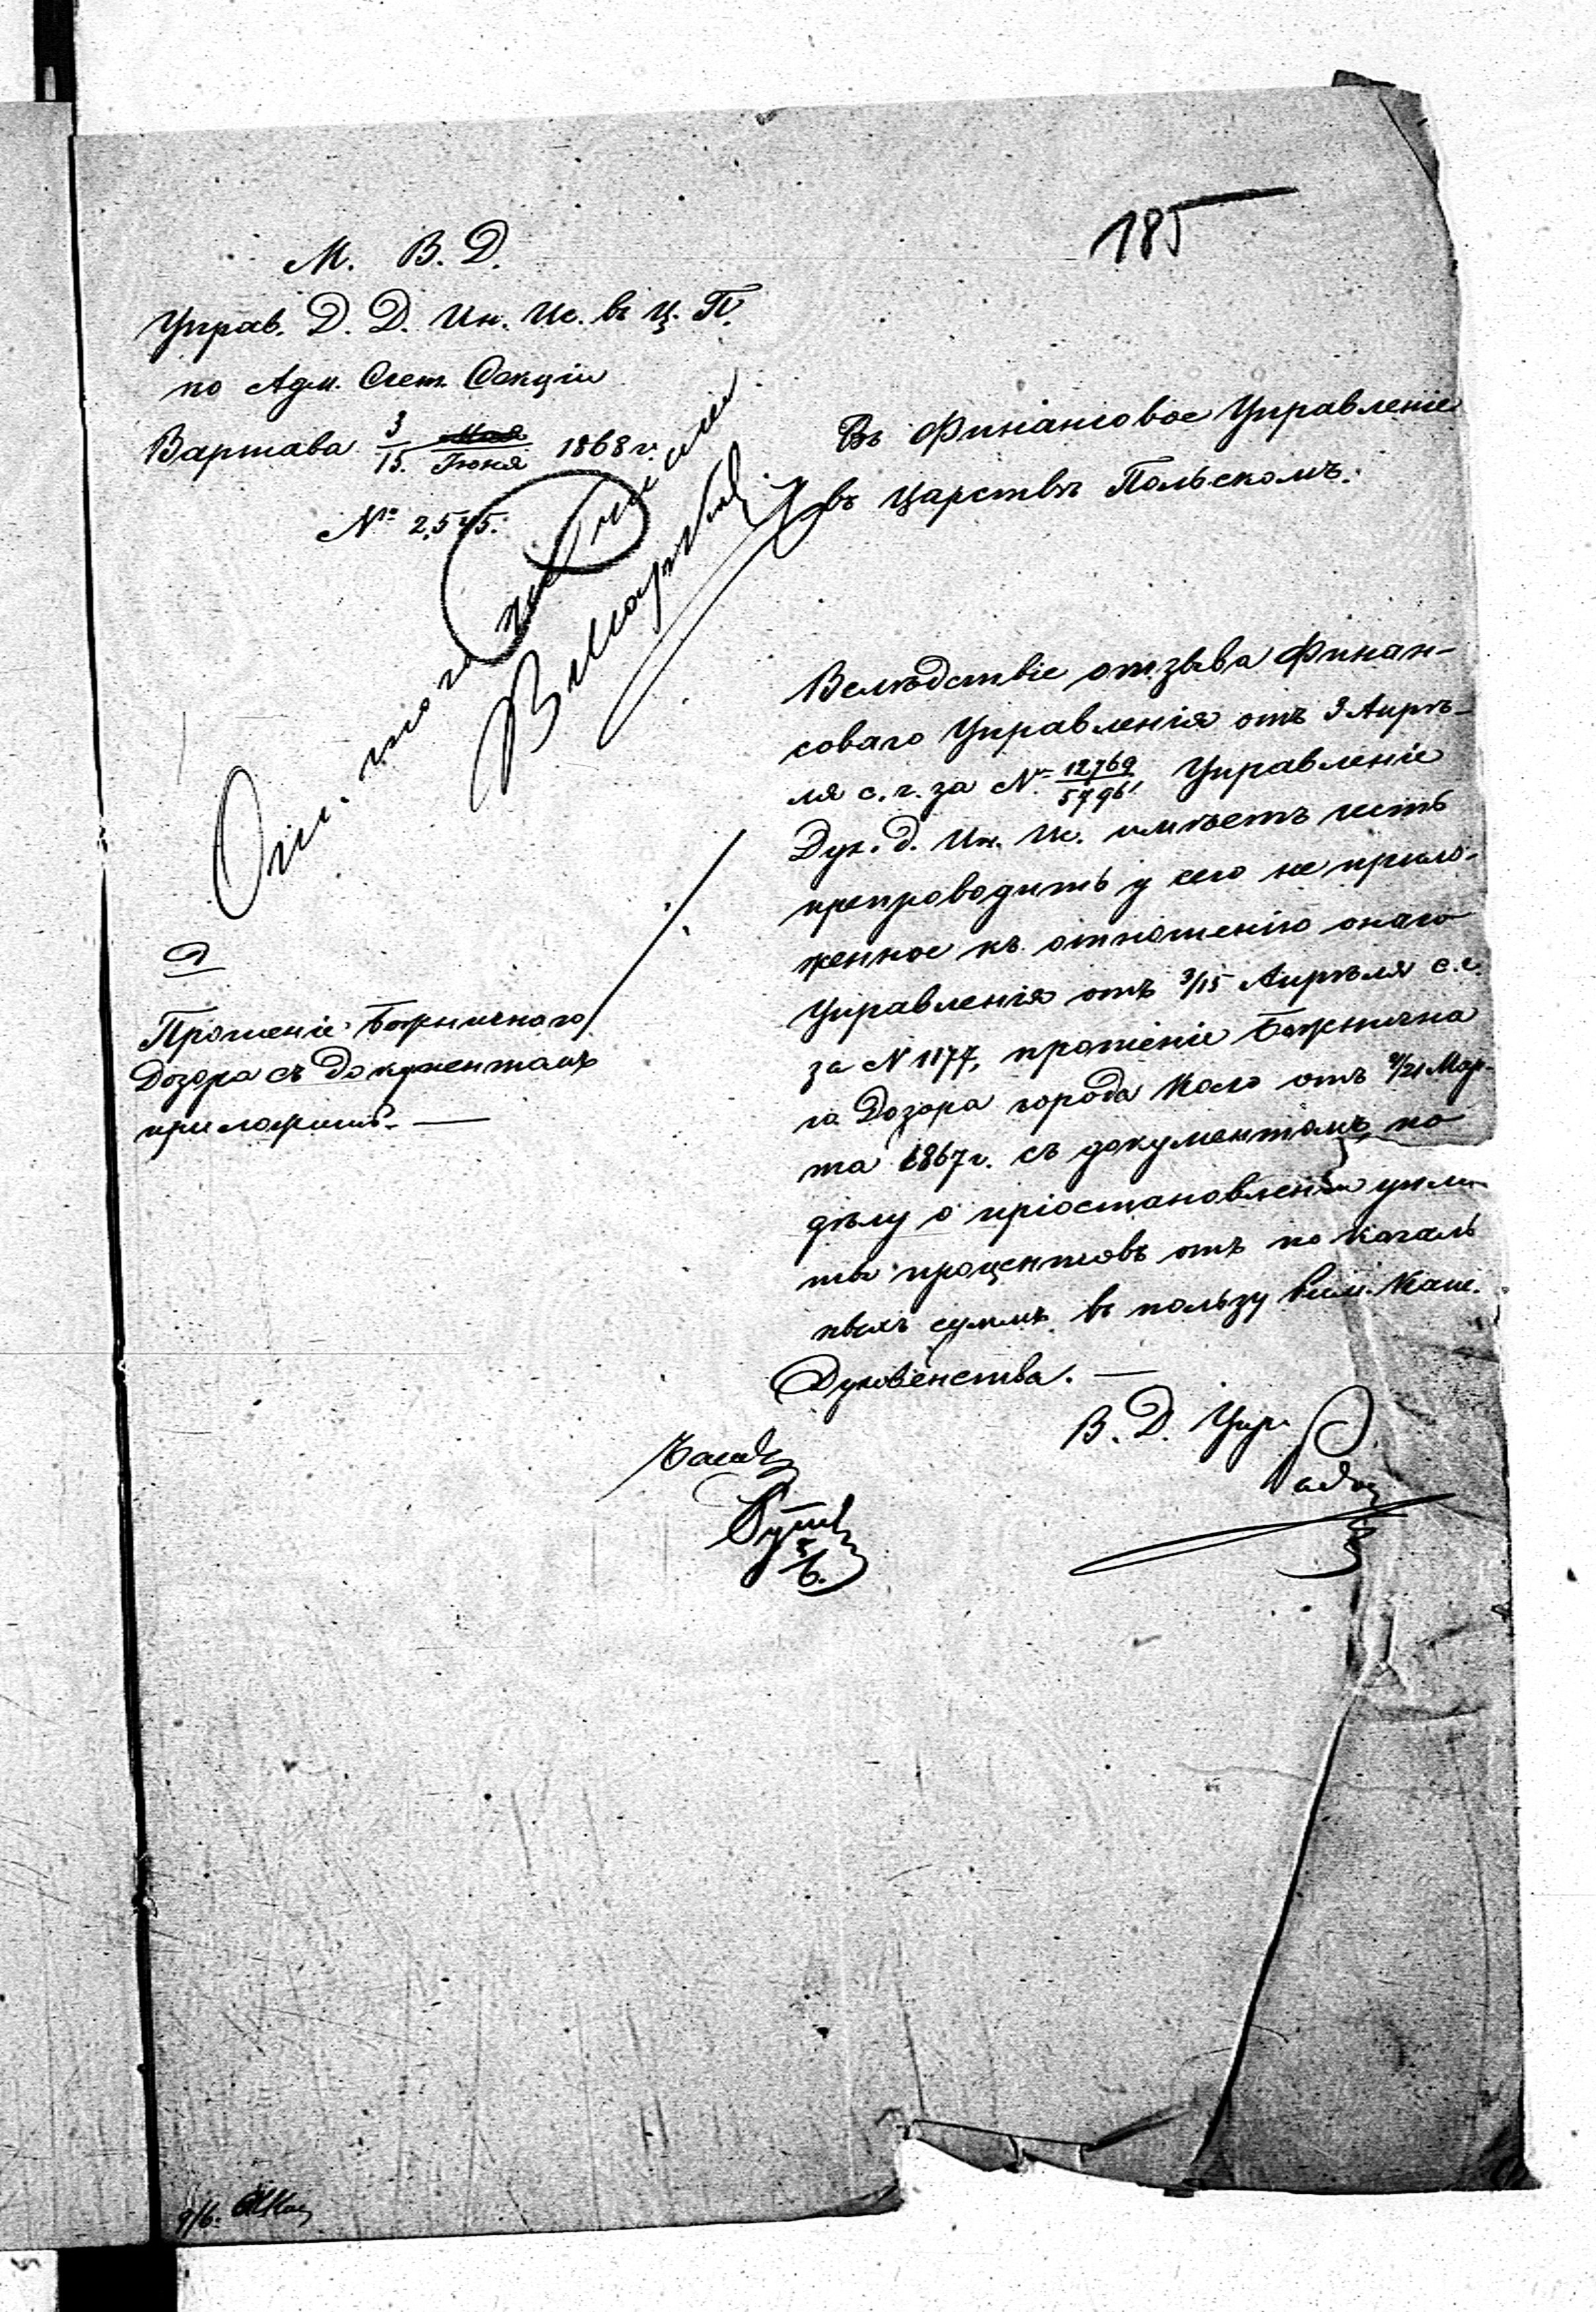 185
М. В. Д.
Управ. Д. Д. Ин. Ис. въ Ц. П.
по Адм. Счет. Секціи
Варшава 3/15 Іюня 1868 г.
№ 2,545.
Въ Финансовое Управленіе
въ Царствѣ Польскомъ.
Вслѣдствіе отзыва Финан-
соваго Управленія отъ 9 Апрѣ-
ля с. г. за № 12769/5796, Управленіе
Дух. Д. Ин. Ис. имѣетъ честь
препроводить у сего не прило-
женное къ отношенію онаго
Управленія отъ 3/15 Апрѣля с. г.
за N 1177, прошеніе Божнична
го Дозора города Коло отъ 9/21 Мар-
та 1867 г. съ документомъ, по
дѣлу о пріостановленіи упла-
ты процентовъ отъ по кагаль
ныхъ суммъ въ пользу Рим. Кат.
Духовенства. —
В. Д. Упр.
Прошеніе Божничнаго
Дозора съ документомъ
приложить. —